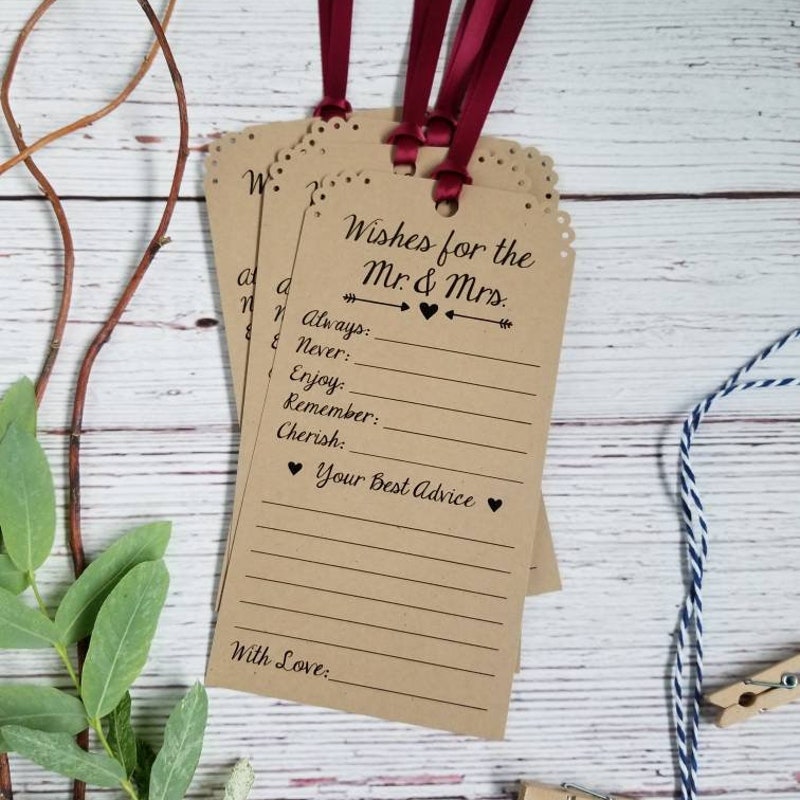 Wishes for the
Mr. & Mrs.
Always:
Never:
Enjoy:
Remember:
Cherish:
Your Best Advice
With Love: